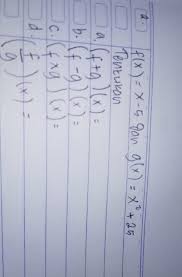 2. f(x) = x - 5 dan g(x) = x² + 25
Tentukan
a. (f+g)(x) =
b. (f-g)(x) =
c. (f×g)(x) =
d. (f/g)(x) =